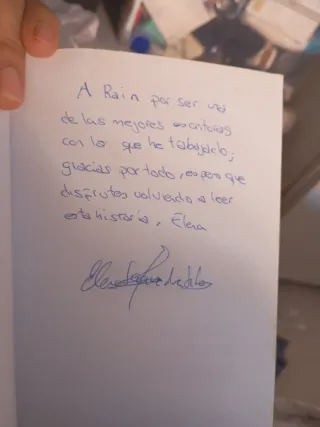 A Rain por ser una
de las mejores escritoras
con la que he trabajado;
gracias por todo, espero que
disfrutes volviendo a leer
esta historia, Elena